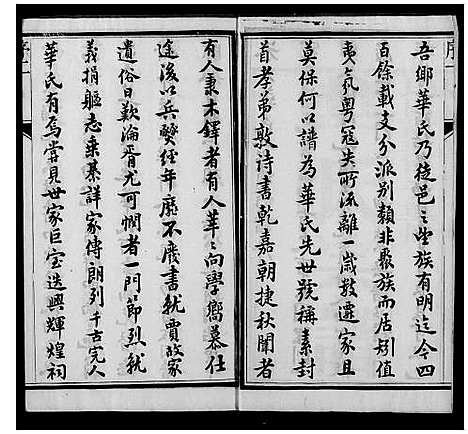 吾鄉華氏乃徒邑之望族有明迄今四
百餘載支分派別類非聚族而居矧值
夷氛粵寇失所流離一歲數遷家且
莫保何以譜為華氏先世號稱素封
首孝弟敦詩書乾嘉朝捷秋闈者
有人秉木鐸者有人莘莘向學嚮慕仕
途後以兵燹經年靡不廢書就賈故家
遺俗日歎淪胥尤可憫者一門節烈就
義捐軀志乘綦詳家傳朗列千古完人
華氏有焉嘗見世家巨室迭興輝煌祠
序一
序二